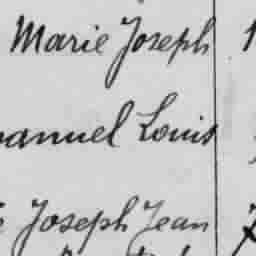 Marie Joseph
anuel Louis
Joseph Jean